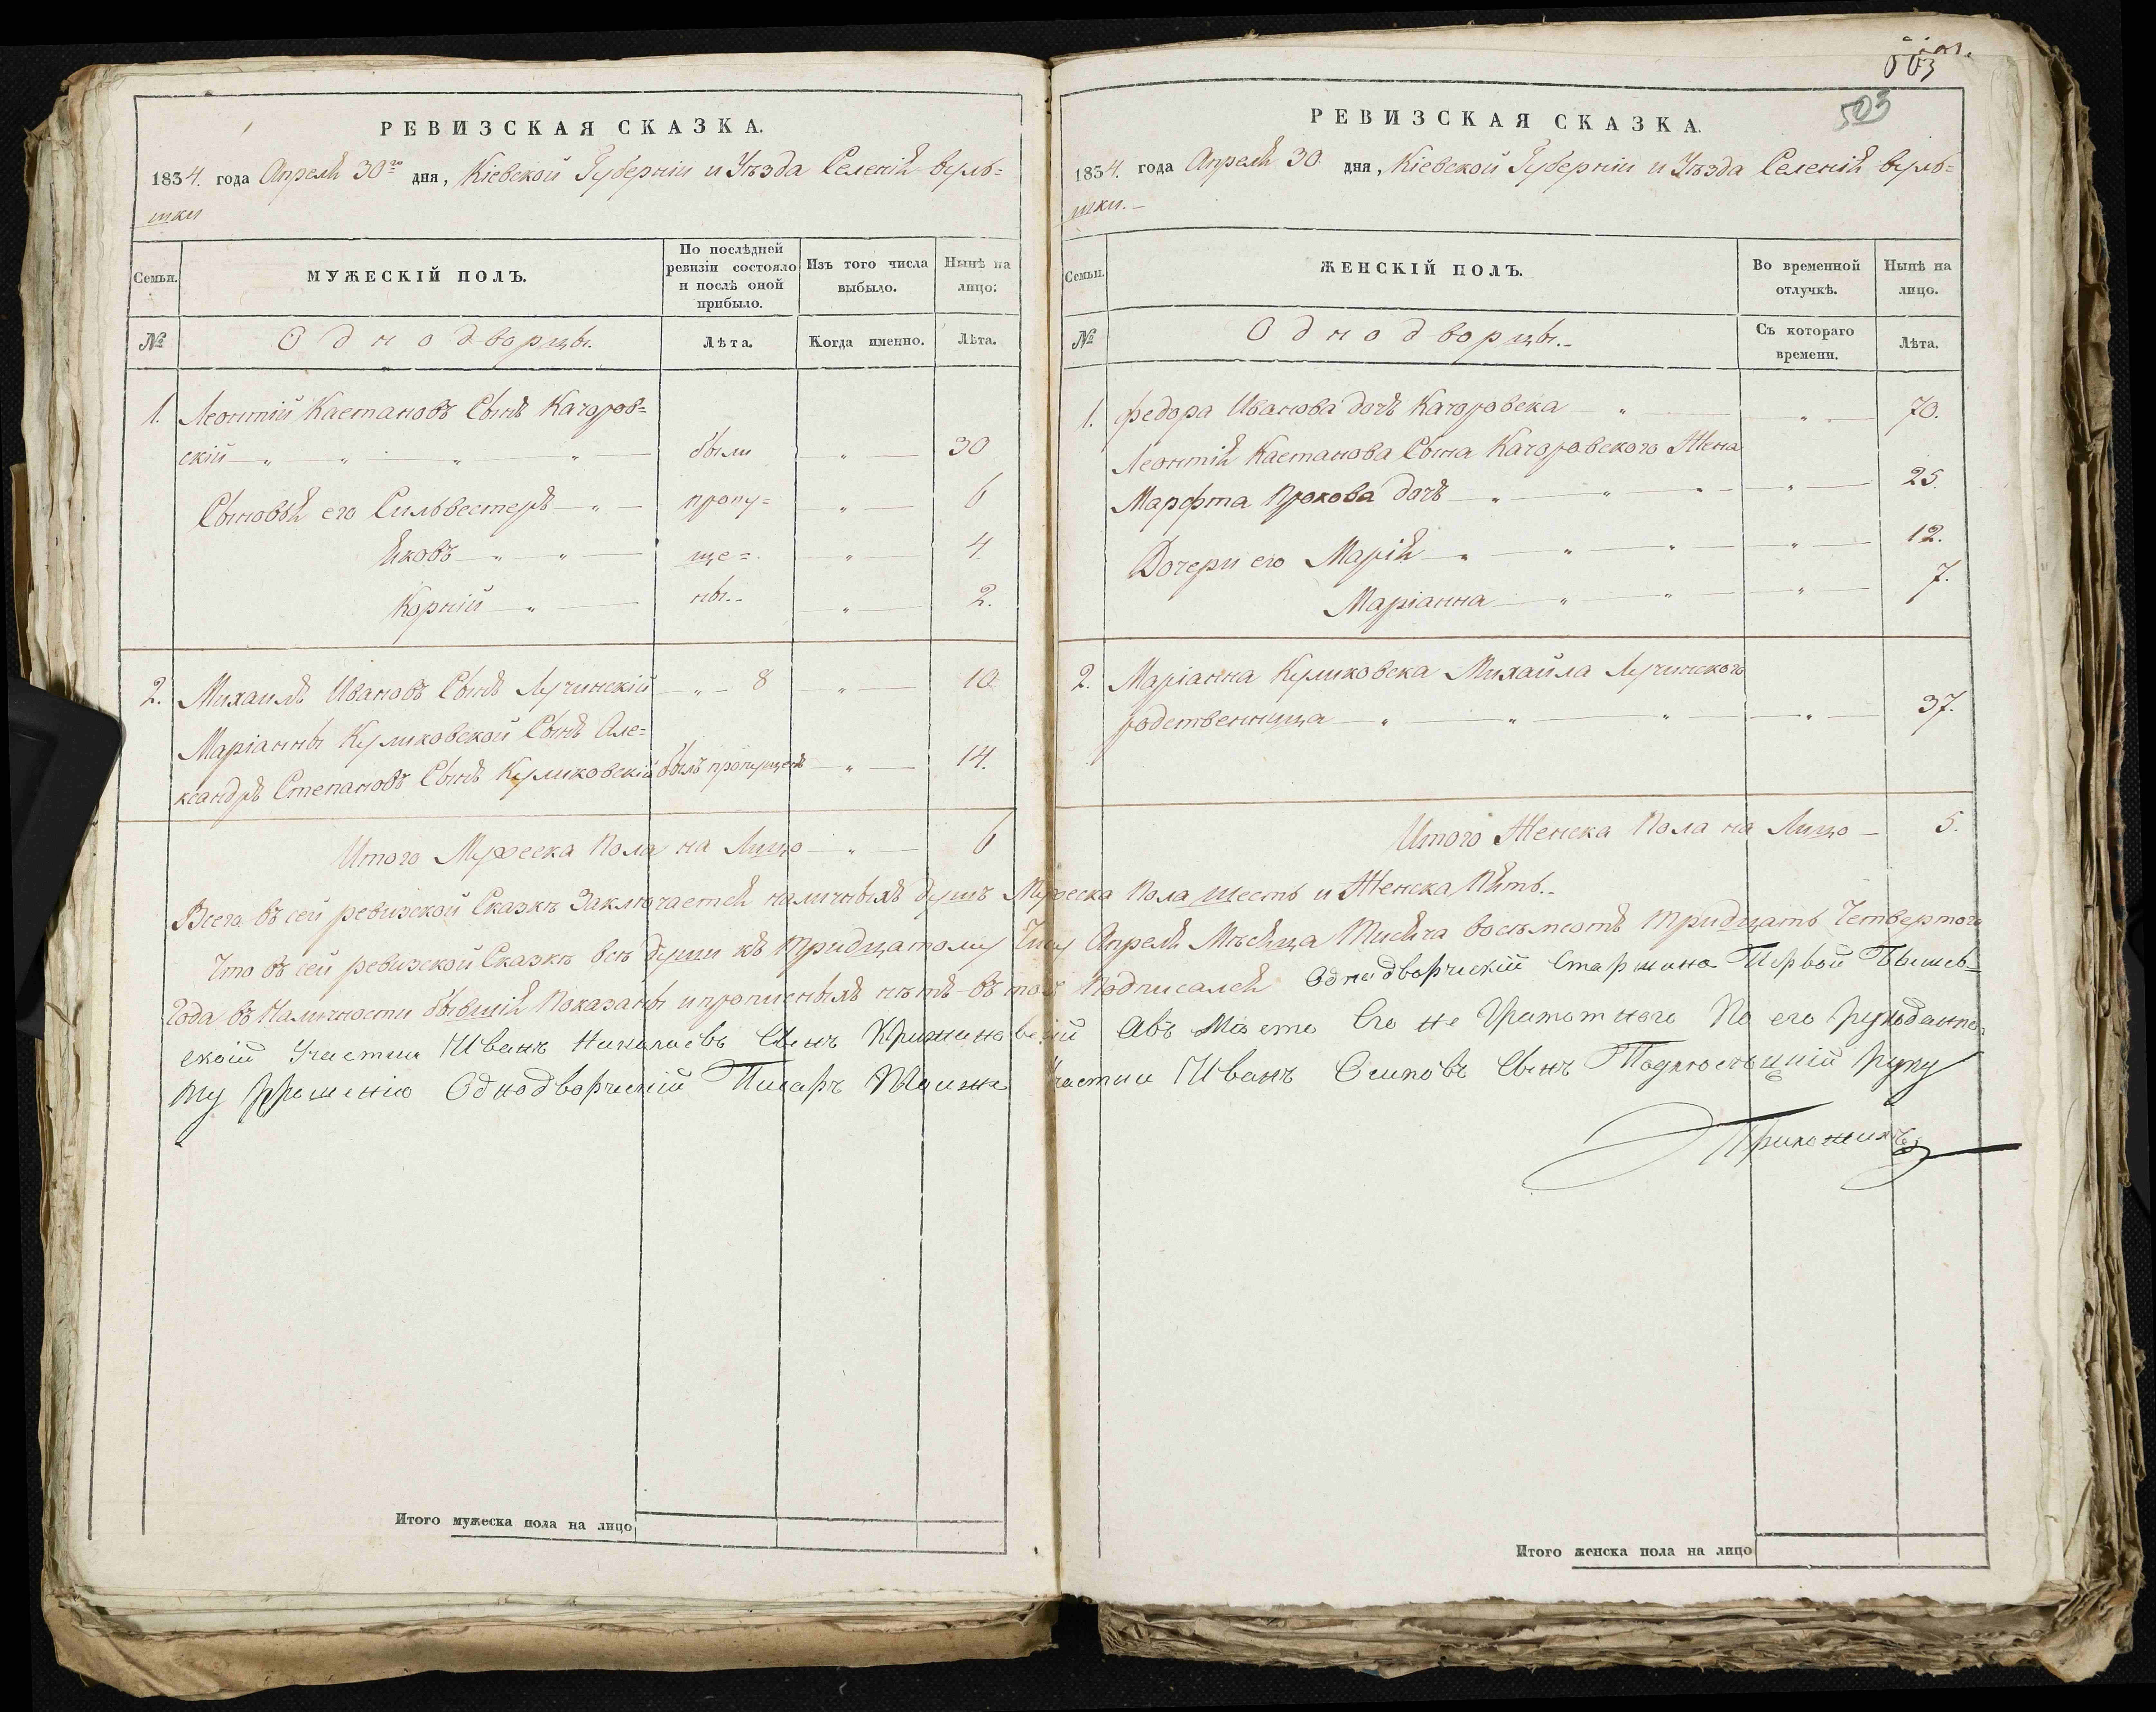 РЕВИЗСКАЯ СКАЗКА.
1834. года Апреля 30го дня, Кіевской Губерніи и Уѣзда Селенія Вуль=
шки
Семьи.
МУЖЕСКІЙ ПОЛЪ.
По послѣдней ревизіи состояло и послѣ оной прибыло.
Изъ того числа выбыло.
Нынѣ на лицо:
№
Однодворцы.
Лѣта.
Когда именно.
Лѣта.
1. Леонтій Каетановъ Сынъ Качоров=
скій — были — 30
Сыновья его Сильвестеръ — пропу= — 6
Яковъ — ще= — 4
Корній — ны. — 2.
2. Михаилъ Ивановъ Сынъ Лучинскій — 8 — 10
Маріанны Куликовской Сынъ Але=
ксандръ Степановъ Сынъ Куликовскій былъ пропущенъ — 14.
Итого Мужеска Пола на Лицо — 6
РЕВИЗСКАЯ СКАЗКА.
503
1834. года Апреля 30 дня, Кіевской Губерніи и Уѣзда Селенія Вуль=
шки.
Семьи.
ЖЕНСКІЙ ПОЛЪ.
Во временной отлучкѣ.
Нынѣ на лицо.
№
Однодворцы.
Съ котораго времени.
Лѣта.
1. Федора Иванова дочь Качоровска — 70.
Леонтія Каетанова Сына Качоровского Жена
Марфта Прокова дочь — 25.
Дочери его Марія — 12.
Маріанна — 7.
2. Маріанна Куликовска Михайла Лучинского
родственница — 37.
Итого Женска Пола на Лицо — 5.
Всего въ сей ревизской Сказкѣ Заключается наличныхъ душъ Мужеска Пола шесть и Женска Пять.
Что въ сей ревизской Сказкѣ всѣ души къ тридцатому Числу Апреля Мѣсяца Тисяча восѣмсотъ тридцать Четвертого
Года въ Наличности бывшія Показаны и прописныхъ нѣтъ въ томъ Подписался Однодворческій Старшина Первой
скоій Участки Иванъ Николаевъ Сынъ авъ Место Его не Грамотнаго По его рукоданно=
му Прошенію Однодворческій Писаръ Участки Иванъ Осиповъ Сынъ руку
Приложилъ
Итого мужеска пола на лицо
Итого женска пола на лицо